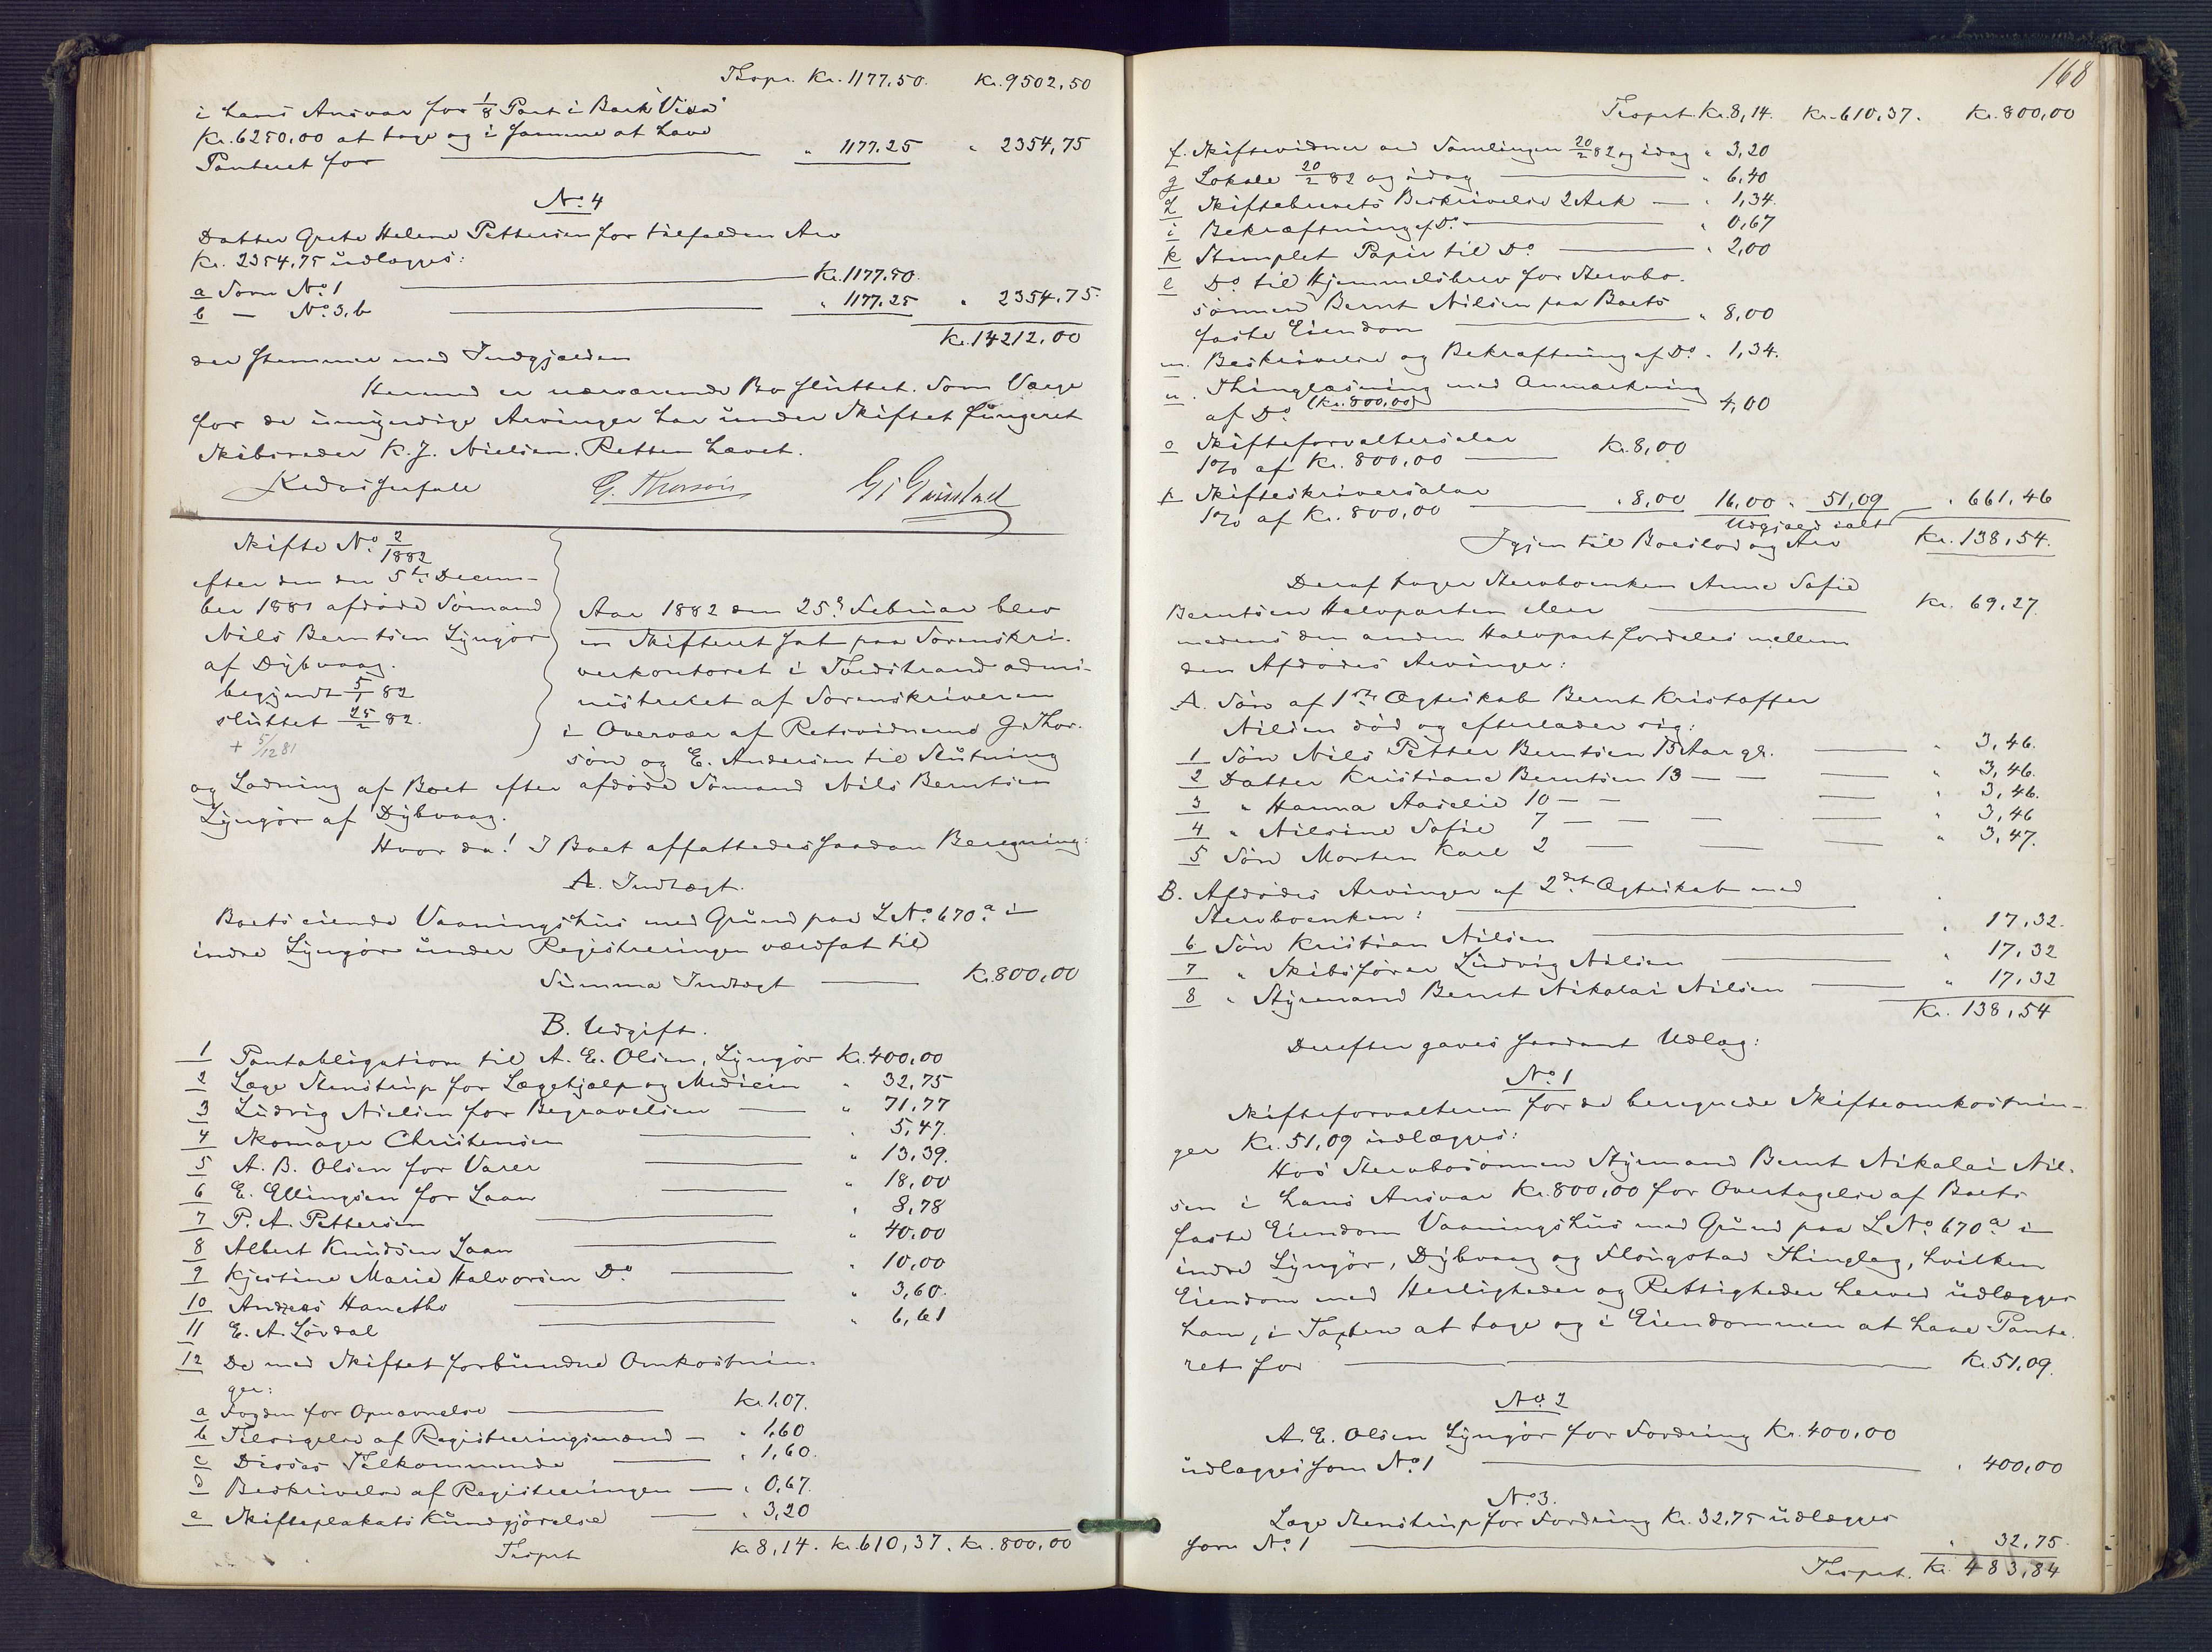 Transp. Kr. 1177.50. Kr. 9502,50
i hans Ansvar for 1/8 Part i Bark "Vida"
Kr. 6250,00 at tage og i samme at have
Panteret for " 1177.25 " 2354,75
No. 4
Datter Grete Helene Pettersen for tilfalden Arv
Kr. 2354.75 udlægges:
a Som No. 1 Kr. 1177.50.
b — No. 3, b " 1177.25 " 2354.75.
Kr. 14212.00
der stemmer med Indgjælden
Hermed er nærværende Bo sluttet. Som Værge
for de umyndige Arvinger har under Skiftet fungeret
Skibsreder K. J. Nielsen. Retten hævet.
G. Thorsön
Skifte No. 2/1882
efter den den 5te Decem-
ber 1881 afdøde Sømand
Nils Berntsen Lyngør
af Dybvaag.
begyndt 5/1 82
sluttet 25/2 82.
+ 5/12 81
Aar 1882 den 25de Februar blev
en Skifteret sat paa Sorenskri-
verkontoret i Tvedstrand admi-
nistreret af Sorenskriveren
i Overvær af Retsvidnerne G. Thor-
sön og E. Andersen til Slutning
og Lodning af Boet efter afdøde Sömand Nils Berntsen
Lyngör af Dybvaag.
Hvor da! I Boet affattedes saadan Beregning:
A. Indtægt.
Boets eiende Vaaningshus med Grund paa L. No. 670a i
indre Lyngör under Registreringen værdsat til
Summa Indtægt Kr. 800,00
B. Udgift.
1 Pantobligation til A. E. Olsen, Lyngör Kr. 400,00
2 Læge Stenstrup for Lægehjælp og Medicin " 32,75
3 Ludvig Nielsen for Begravelsen " 71,77
4 Skomager Christensen " 5,47.
5 A. B. Olsen for Varer " 13,39.
6 E. Ellingsen for Laan " 18,00
7 P. A. Pettersen " 8,78
8 Albert Knudsen Laan " 40,00
9 Kjerstine Marie Halvorsen Do. " 10,00
10 Andreas " 3,60.
11 E. A. Lövdal " 6,61
12 De med Skiftet forbundne Omkostnin-
ger:
a Fogden for Opnævnelse Kr. 1,07.
b Tilsigelse af Registreringsmænd " 1,60
c Disses Tilkommende " 1,60.
d Beskrivelse af Registreringen " 0,67.
e Skifteplakats Kundgjörelse " 3,20
Trsprt Kr. 8,14. Kr. 610,37. Kr. 800,00
168
Trsprt. Kr. 8,14. Kr. 610,37. Kr. 800,00
f. Skiftevidner ved Samlingen 20/2 82 og idag " 3,20
g Lokale 20/2 82 og idag " 6,40
h Skiftebrevets Beskrivelse 2 Ark " 1,34.
i Bekræftning af Do. " 0,67
k Stemplet Papir til Do. " 2,00
l Do. til Hjemmelsbrev for Stervbo-
sönnen Bernt Nilsen paa Boets
faste Eiendom " 8,00
m. Beskrivelse og Bekræftning af Do. " 1,34.
n. Thinglæsning med Anmærkning
af Do. (Kr. 800,00) 4,00
o Skifteforvaltersalær
1% af Kr. 800,00 Kr. 8,00
p Skifteskriversalær
1% af Kr. 800,00 " 8,00 16,00 " 51,09 " 661,46
Udgjæld ialt
Igjen til Boeslod og Arv Kr. 138,54.
Deraf tager Stervboenken Anne Sofie
Berntsen Halvparten eller Kr. 69,27.
medens den anden Halvpart fordeles mellem
den Afdødes Arvinger:
A. Sön af 1ste Ægteskab Bernt Kristoffer
Nilsen död og efterlader sig:
1 Sön Nils Petter Berntsen 15 Aar gl. " 3,46.
2 Datter Kristiane Berntsen 13 — — " 3,46.
3 " Hanna Aaselie 10 — — " 3,46.
4 " Nilsine Sofie 7 — — " 3,46
5 Sön Morten Karl 2 — — " 3,47.
B. Afdødes Arvinger af 2det Ægteskab med
Stervboenken:
6 Sön Kristian Nilsen " 17,32.
7 " Skibsförer Ludvig Nilsen " 17,32
8 " Styrmand Bernt Nikolai Nilsen " 17,32
Kr. 138,54
Derefter gaves saadant Udlæg:
No. 1
Skifteforvalteren for de beregnede Skifteomkostnin-
ger Kr. 51,09 udlægges:
Hos Stervbosönnen Styrmand Bernt Nikolai Nil-
sen i hans Ansvar Kr. 800,00 for Overtagelse af Boets
faste Eiendom Vaaningshus med Grund paa L. No. 670a i
indre Lyngör, Dybvaag og Flosta Thinglag, hvilken
Eiendom med Herligheder og Rettigheder herved udlægges
ham, i Taxten at tage og i Eiendommen at have Pante-
ret for Kr. 51,09.
No. 2
A. E. Olsen Lyngör for Fordring Kr. 400,00
udlægges som No. 1 " 400,00
No. 3.
Læge Stenstrup for Fordring Kr. 32,75 udlægges
som No. 1 " 32,75.
Trsprt. Kr. 483,84